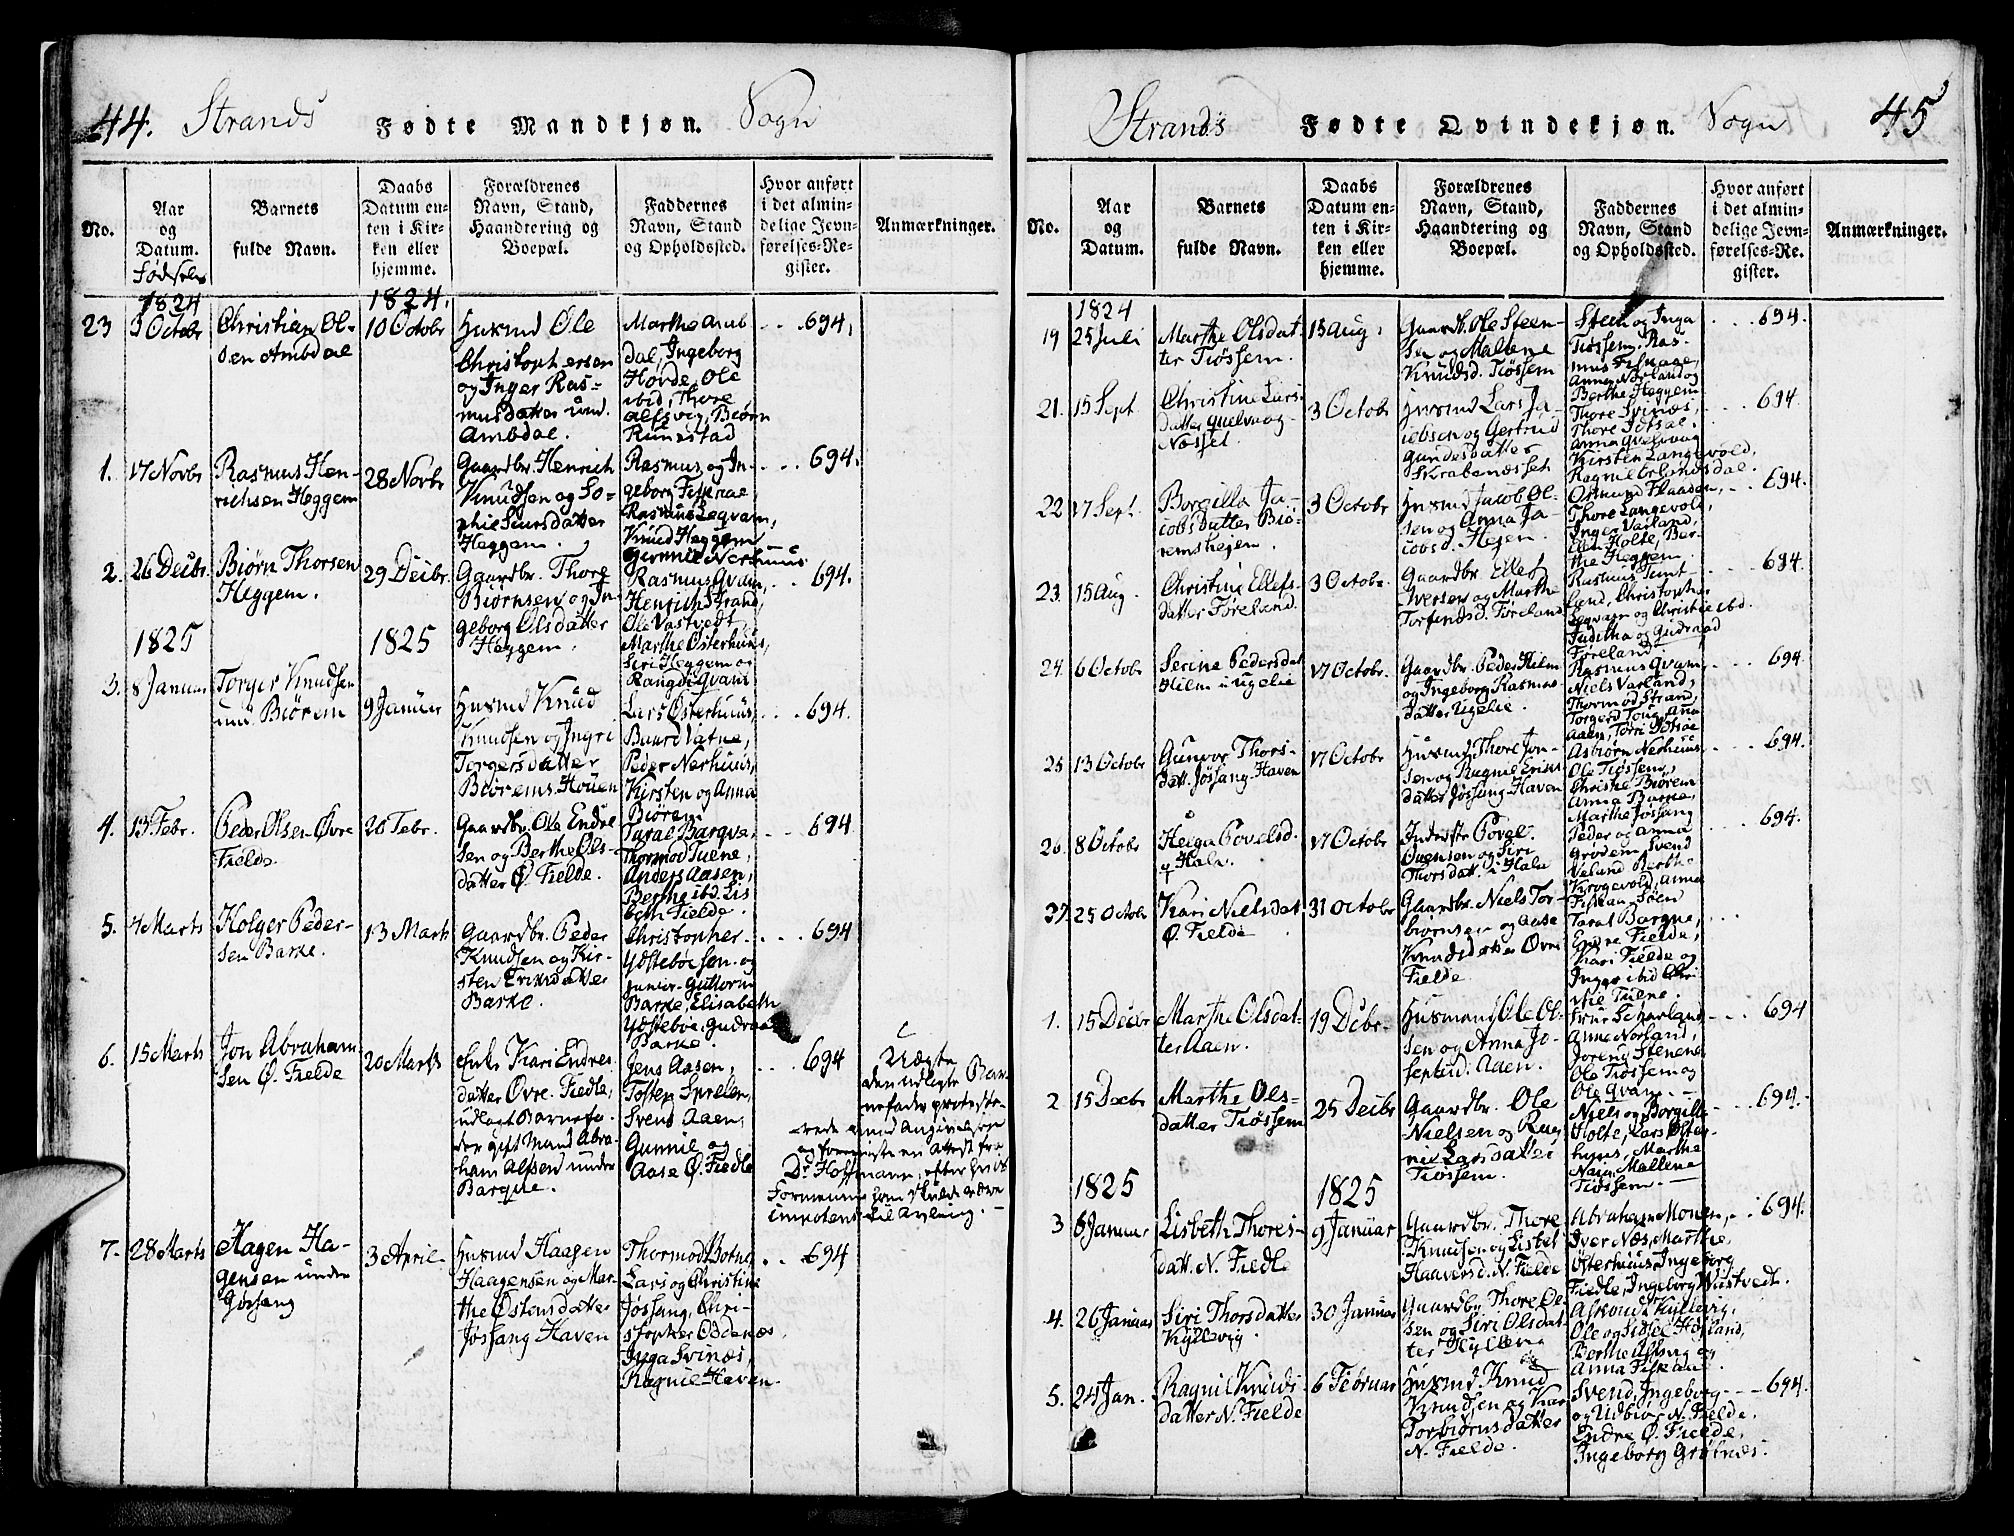 44. Strands Fødte Mandkjøn. Sogn
No.
Aar
og
Datum.
Fødsels
Barnets
fulde Navn.
Daabs
Datum en-
ten i Kir-
ken eller
hjemme.
Forældrenes
Navn, Stand,
Haandtering og
Boepæl.
Faddernes
Navn, Stand
og Opholdssted.
Hvor anført
i det almin-
delige Jevn-
førelses-Re-
gister.
Anmærkninger.
1824
1824.
23
3 Octobr
Christian Ol-
sen Ambdal
10 Octobr
Husmd Ole
Christophersen
og Inger Ras-
musdatter und.
Ambdal.
Marthe Amb
dal, Ingeborg
Hovde, Ole
ibid, Thore
Alfsvig, Biørn
Runestad
694.
1.
17 Novbr
Rasmus Hen-
richsen Heggem
28 Novbr
Gaardbr. Henrich
Knudsen og So-
phie
Heggem.
Rasmus og In-
geborg
Rasmus Legvam,
Knud Heggem
Gunnil Nerhuus
694.
2.
26 Decbr.
Biørn Thorsen
Heggem.
29 Decbr.
Gaardbr. Thore
Biørnsen og In-
geborg Olsdatter
Heggem.
Rasmus Qvam,
Henrich Strand,
Ole Vastvedt,
Marthe Østerhuus,
Siri Heggem og
Rangdi Qvam
694.
1825
1825
3.
8 Januar
Torger Knudsen
und. Biørem
9 Januar
Husmd Knud
Knudsen og Ingri
Torgersdatter
Biørems Houen
Lars Østerhuus,
Baard Vatne,
Peder Nerhuus,
Kirsten og Anna
Biørem
694.
4.
13 Febr.
Peder Olsen Øvre
Fielde
20 Febr.
Gaardbr. Ole Endre
sen og Berthe Ols-
datter Ø. Fielde.
Taral Barqve,
Thormod Tuene,
Anders Aasen,
Berthe ibd. Lis
beth Fielde.
694
5.
4 Marts
Holger Peder-
sen Barke.
13 Marts
Gaardbr. Peder
Knudsen og Kir-
sten Eriksdatter
Barke.
Christopher
Ydstebøe sen. og
junior. Guttorm
Barke, Elisabeth
Ydstebøe, Gudrun
Barke.
694
6.
15 Marts
Jon Abraham
sen Ø. Fielde
20 Marts
Enke Kari Endres
datter Øvre. Fiedle,
udlagt Barnefa-
der gift Mand Abra-
ham Alfsen under
Barqve.
Jens Aasen,
Tosten
Svend Aaen,
Gunnil og
Aase Ø. Fiedle
694
Uægte
den udlagte Bar-
nefader proteste-
rede imod Angivelsen
og fremviste en Attest fra
Dr. Hoffmann, efter hvis
Formening han skulde være
impotens til Avling.
7.
28 Marts
Hagen Ha-
gensen under
Jøssang
3 April
Husmd Haagen
Haagensen og Mar-
the Østensdatter
Jøssang Haven
Thormod Botne,
Lars og Christine
Jøssang, Chri-
stopher
Inga Svinæs,
Ragnil Haven.
694
Strands Fødte Qvindekjøn. Sogn 45
No.
Aar
og
Datum.
Barnets
fulde Navn.
Daabs
Datum en-
ten i Kir-
ken eller
hjemme.
Forældrenes
Navn, Stand,
Haandtering og
Boepæl.
Faddernes
Navn, Stand
og Opholdssted.
Hvor anført
i det almin-
delige Jevn-
førelses-Re-
gister.
Anmærkninger.
1824
19
25 Juli
Marthe Olsdat
ter Tiøssem.
15 Aug.
Gaardb. Ole Steen-
sen og Mallene
Knudsd. Tiøssem
Steen og Inga
Tiøssem, Ras-
mus
Anne Norland og
Berthe Heggem
694.
21.
15 Sept.
Christine Lars
datter
Næsset.
3 Octobr
Husmd Lars Ja-
cobsen og Gertrud
Gundesdatter
Skrabenæsset
Thore Svinæs,
Thore Totsal.
Anna
Kirsten Langevold,
Ragnil
694.
22
17 Sept.
Borgilla Ja-
cobsdatter Biø-
remshejen.
3 Octobr
Husmd Jacob Ol-
sen og Anna Ja-
cobsd. Hejen.
Osmund Haaden,
Thore Langevold,
Inger Varland,
Elen Holte, Ber-
the Heggem.
694.
23.
15 Aug.
Christine Ellefs
datter Føreland.
3 Octobr.
Gaardbr. Ellef
Iversen og Marthe
Torfinsd. Føreland
Rasmus Temt-
land, Christopher
Legvam og Christie ibd.
Juditha og Gudraad
Føreland
694
24
6 Octobr
Serine Pedersdat
Hilm i Ugelie
17 Octobr.
Gaardbr. Peder Hilm
og Ingeborg Rasmus
datter Ugelie.
Rasmus Qvam,
Niels Varland,
Thormod Strand,
Torgerd Toug, Ana
Aaen, Torri Totsal
694
25
13 Octobr
Gunvor Thors-
datt. Jøssang-Haven
17 Octobr.
Husmd Thore Jon-
sen og Ragnil Eriks
datter Jøssang-Haven
Asbiørn Nerhuus
Ole Tiøssem,
Christie Biørem
Anna Barke,
Marthe Jøssang
694.
26.
8 Octobr
Helga Povelsd.
i Hala.
17 Octobr
Inderste Povel
Svensen og Siri
Thorsdatt. i Hala
Peder og Anna
Grødem, Svend
Veland Berthe
Krogevold, Anna
Fiskan
694.
27.
25 Octobr
Kari Nielsdat
Ø. Fielde
31 Octobr
Gaardbr. Niels Tor-
biørnsen og Aase
Knudsdatter Øvre
Fielde
Taral Barqve,
Endre Fielde,
Kari Fielde og
Inger ibid Chri
stie Tuene.
1.
15 Decbr
Marthe Olsdat-
ter Aaen.
19 Dcbr.
Husmand Ole Ol-
sen og Anna Jo-
sephsd. Aaen.
Frue Scharland
Anne Norland,
Joren Stenene
Ole Tiøssem og
Ole Qvam.
694
2
15 Decbr
Marthe Ols-
datter Tiøssem
25 Decbr
Gaardbr. Ole
Nielsen og Rag
nil Larsdatter
Tiøssem.
Niels og Borgille
Holte, Lars Øster-
huus, Marthe
Næs, Mallene
Tiøssem.
694.
1825
1825
3
6 Januar
Lisbeth Thores-
datt. N. Fiedle
9 Januar
Gaardbr. Thore
Knudsen og Lisbet
Haaversd. N. Fielde
Abraham Monen,
Iver Næs, Marthe,
Østerhuus, Ingeborg
Fiedle, Ingeborg Wastvedt.
694.
4.
26 Januar
Siri Thorsdatter
Kyllevig.
30 Januar
Gaardbr. Thore Ol-
sen og Siri Olsdat-
ter Kyllevig
Asmund Kyllevig,
Ole og Sidsel Høyland,
Berthe Alfsvig og
Anna Fiskan.
5.
24 Jan.
Ragnil Knuds
datter N. Fielde
6 Februar
Husmd. Knud
Knudsen og Kari
Torbiørnsdatter
N. Fielde.
Svend, Ingeborg
og Udbiør N. Fielde,
Endre Ø. Fielde,
Ingeborg Grøtnæs.
694.